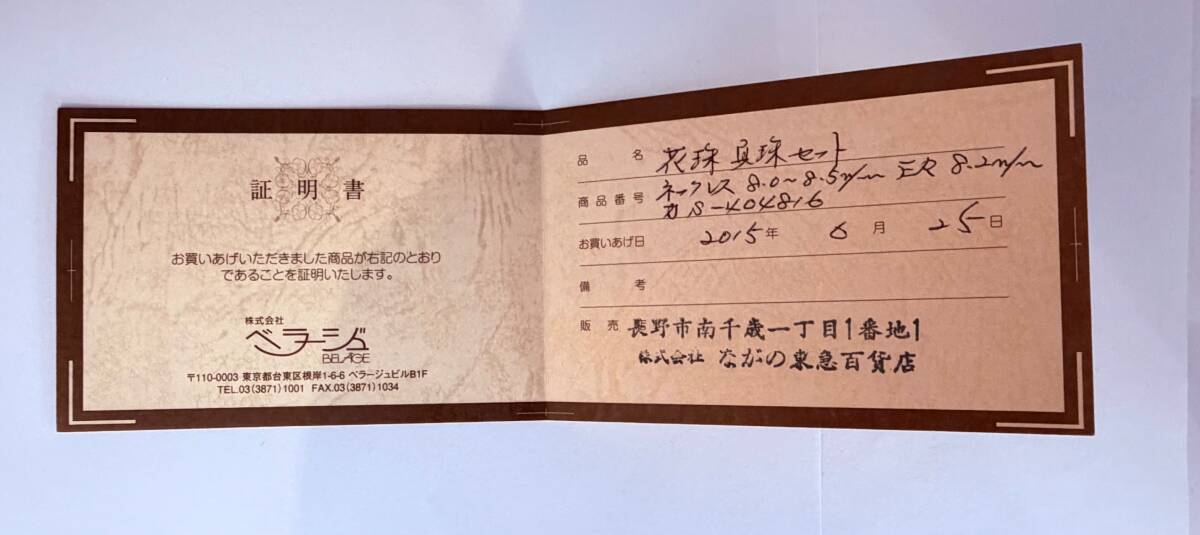 証明書
お買いあげいただきました商品が右記のとおり
であることを証明いたします。
株式会社
ベラージュ
BELAGE
〒110-0003 東京都台東区根岸1-6-6 ベラージュビルB1F
TEL.03(3871)1001 FAX.03(3871)1034
品名 花珠真珠セット
商品番号 ネックレス 8.0～8.5m/m ER 8.2m/m
S-404816
お買いあげ日 2015年 6月 25日
備考
販売 長野市南千歳一丁目1番地1
株式会社 ながの東急百貨店